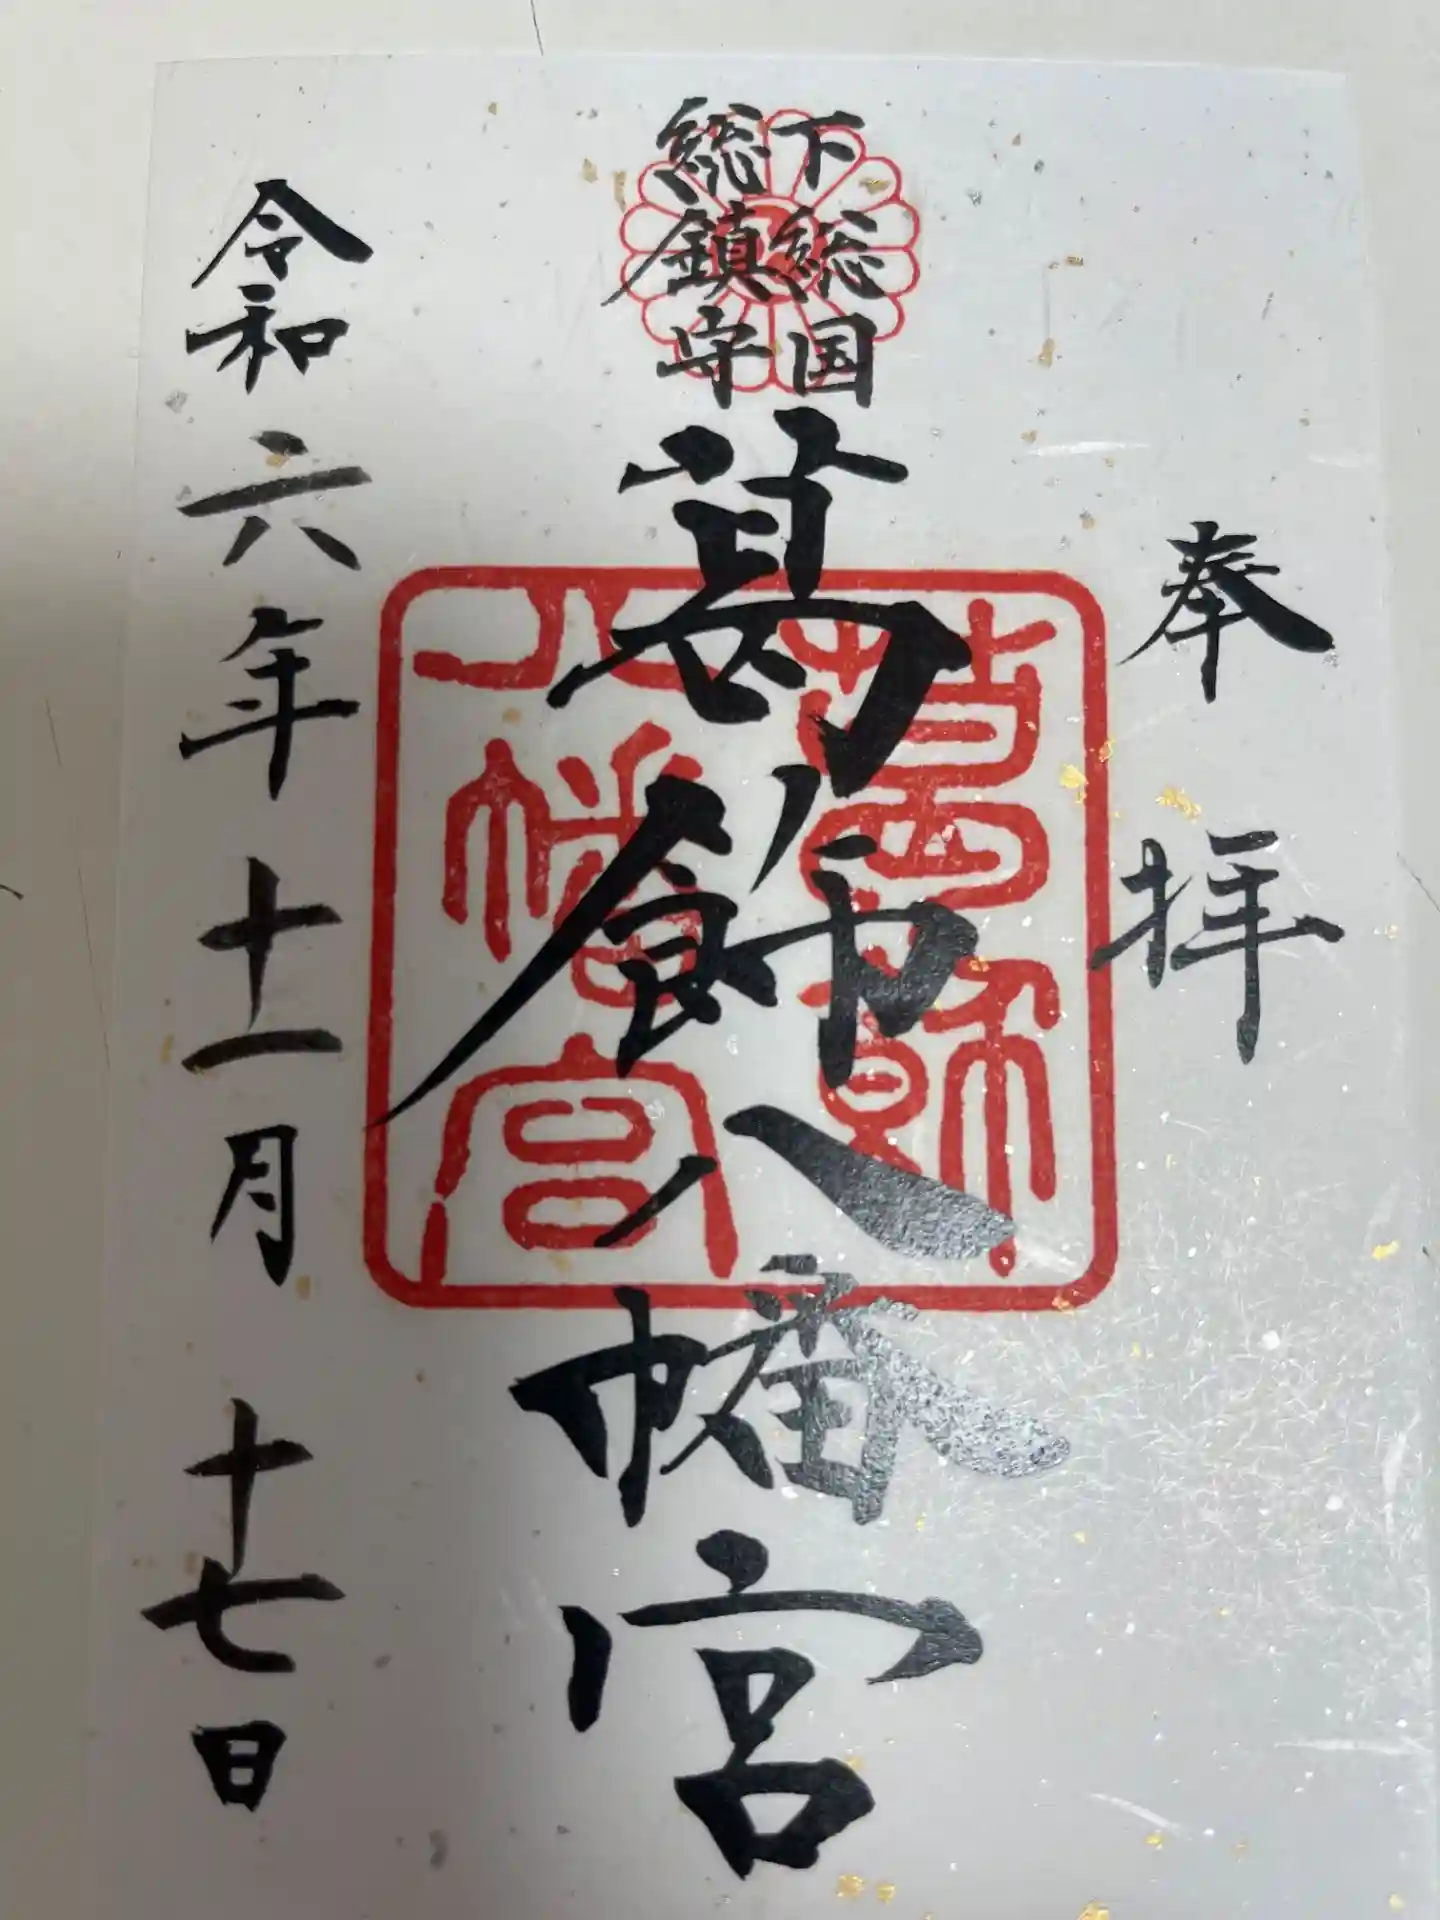 奉拝
下総国
総鎮守
葛飾八幡宮
葛飾
八幡宮
令和六年十一月十七日